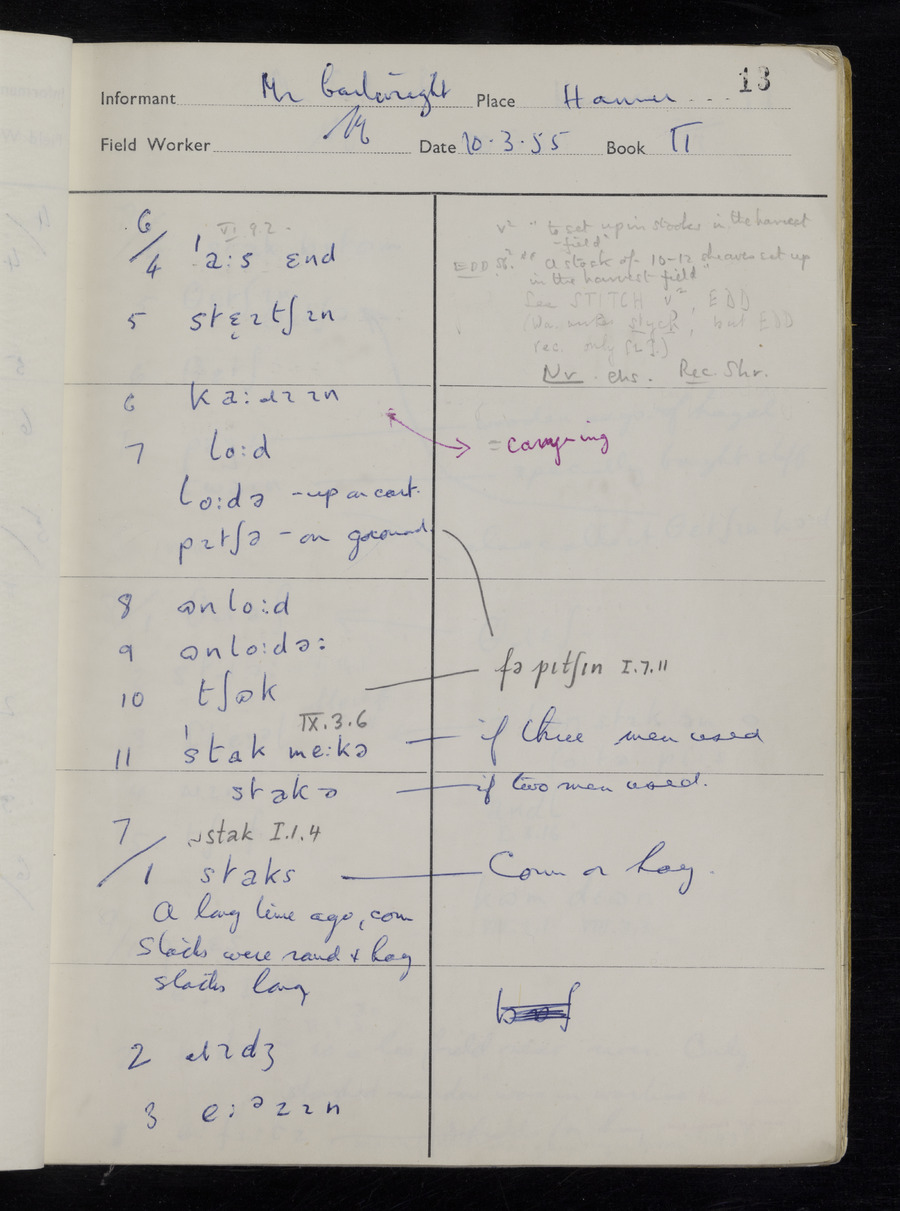 13
Informant Mr Cartwright Place Hanmer
Field Worker Date 10.3.55 Book II
6/4 ˈa:s ɛnd VI.9.2.
v² "to set up in stooks in the harvest
-field"
EDD sb.² "A stook of 10-12 sheaves set up
in the harvest field"
See STITCH v², EDD
5 stɛ̨ɪtʃɪn
but EDD
rec. only [ɪ].)
Nr. chs. Rec. Shr.
6 ka:ɹɪɪn
= carrying
7 lo:d
lo:də - up on cart.
pɪtʃə - on ground
8 ɷnlo:d
9 ɷnlo:də:
fə pɪtʃɪn I.7.11
10 tʃɷk
IX.3.6
11 ˈstak me:kə if three men used
stakə if two men used.
7/1 stak I.1.4
staks Corn or hay.
A long time ago, corn
Stacks were round & hay
stacks long
2 ɛɪdʒ
3 e:əɹɪn